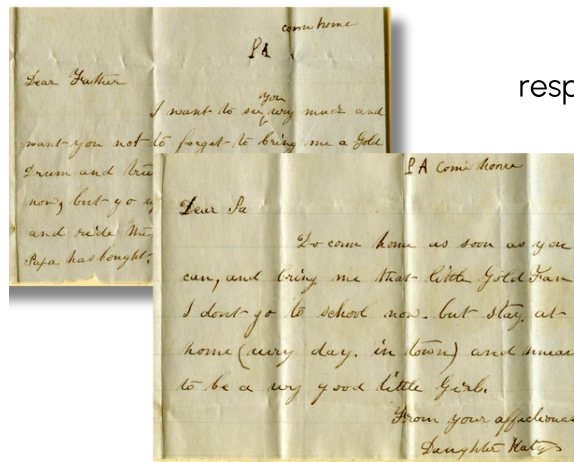 come home
PA
Dear Father
I want to see you very much and
want you not to forget to bring me a Gold
Drum and
now, but go
and ride the
Papa has bought.
resp
PA come home
Dear Pa
Do come home as soon as you
can, and bring me that little Gold Fan
I dont go to school now. but stay at
home (every day. in town) and mean
to be a very good little Girl.
From your affectionate
Daughter Katy